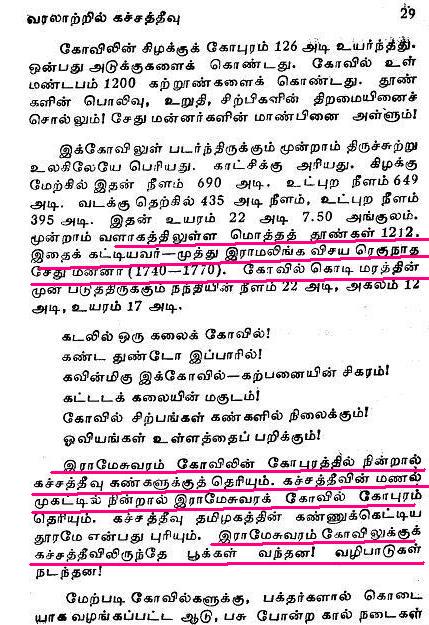 வரலாற்றில் கச்சத்தீவு 29
கோவிலின் கிழக்குக் கோபுரம் 126 அடி உயர்ந்தது.
ஒன்பது அடுக்குகளைக் கொண்டது. கோவில் உள்
மண்டபம் 1200 கற்றூண்களைக் கொண்டது. தூண்
களின் பொலிவு, உறுதி, சிற்பிகளின் திறமையினைச்
சொல்லும்! சேது மன்னர்களின் மாண்பினை அள்ளும்!
இக்கோவிலுள் படர்ந்திருக்கும் மூன்றாம் திருச்சுற்று
உலகிலேயே பெரியது. காட்சிக்கு அரியது. கிழக்கு
மேற்கில் இதன் நீளம் 690 அடி. உட்புற நீளம் 649
அடி. வடக்கு தெற்கில் 435 அடி நீளம், உட்புற நீளம்
395 அடி. இதன் உயரம் 22 அடி 7.50 அங்குலம்.
மூன்றாம் வளாகத்திலுள்ள மொத்தத் தூண்கள் 1212.
இதைக் கட்டியவர்—முத்து இராமலிங்க விசய ரெகுநாத
சேது மன்னா (1740—1770). கோவில் கொடி மரத்தின்
முன் படுத்திருக்கும் நந்தியின் நீளம் 22 அடி, அகலம் 12
அடி, உயரம் 17 அடி.
கடலில் ஒரு கலைக் கோவில்!
கண்ட துண்டோ இப்பாரில்!
கவின்மிகு இக்கோவில்—கற்பனையின் சிகரம்!
கட்டடக் கலையின் மகுடம்!
கோவில் சிற்பங்கள் கண்களில் நிலைக்கும்!
ஓவியங்கள் உள்ளத்தைப் பறிக்கும்!
இராமேசுவரம் கோவிலின் கோபுரத்தில் நின்றால்
கச்சத்தீவு கண்களுக்குத் தெரியும். கச்சத்தீவின் மணல்
முகட்டில் நின்றால் இராமேசுவரக் கோவில் கோபுரம்
தெரியும். கச்சத்தீவு தமிழகத்தின் கண்ணுக்கெட்டிய
தூரமே என்பது புரியும். இராமேசுவரம் கோவிலுக்குக்
கச்சத்தீவிலிருந்தே பூக்கள் வந்தன! வழிபாடுகள்
நடந்தன!
மேற்படி கோவில்களுக்கு, பக்தர்களால் கொடை
யாக வழங்கப்பட்ட ஆடு, பசு போன்ற கால் நடைகள்